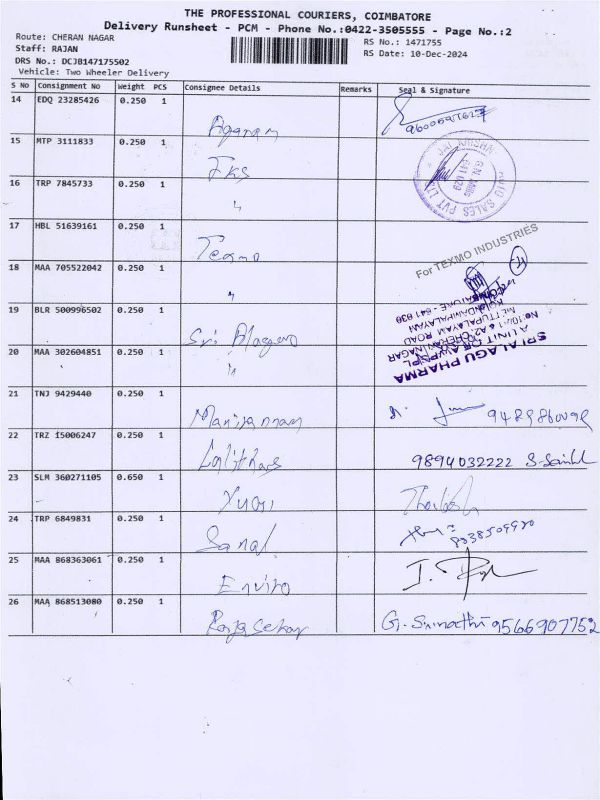 THE PROFESSIONAL COURIERS, COIMBATORE
Delivery Runsheet - PCM - Phone No.:0422-3505555 - Page No.:2
Route: CHERAN NAGAR
Staff: RAJAN
DRS No.: DCJB147175502
Vehicle: Two Wheeler Delivery
RS No.: 1471755
RS Date: 10-Dec-2024
S No Consignment No Weight PCS Consignee Details Remarks Seal & Signature
14 EDQ 23285426 0.250 1 Agaram
15 MTP 3111833 0.250 1 JKS
16 TRP 7845733 0.250 1 "
17 HBL 51639161 0.250 1 Texmo
For TEXMO INDUSTRIES
18 MAA 705522042 0.250 1 "
19 BLR 500996502 0.250 1 Sri Alaguu
20 MAA 302604851 0.250 1 "
SRI ALAGU PHARMA
METTUPALAYAM ROAD
21 TNJ 9429440 0.250 1
22 TRZ 15006247 0.250 1 9894032222
23 SLM 360271105 0.650 1
24 TRP 6849831 0.250 1 Sanal
25 MAA 868363061 0.250 1 Enviro
26 MAA 868513080 0.250 1 Rajasekar G. Srimathi 9566907752